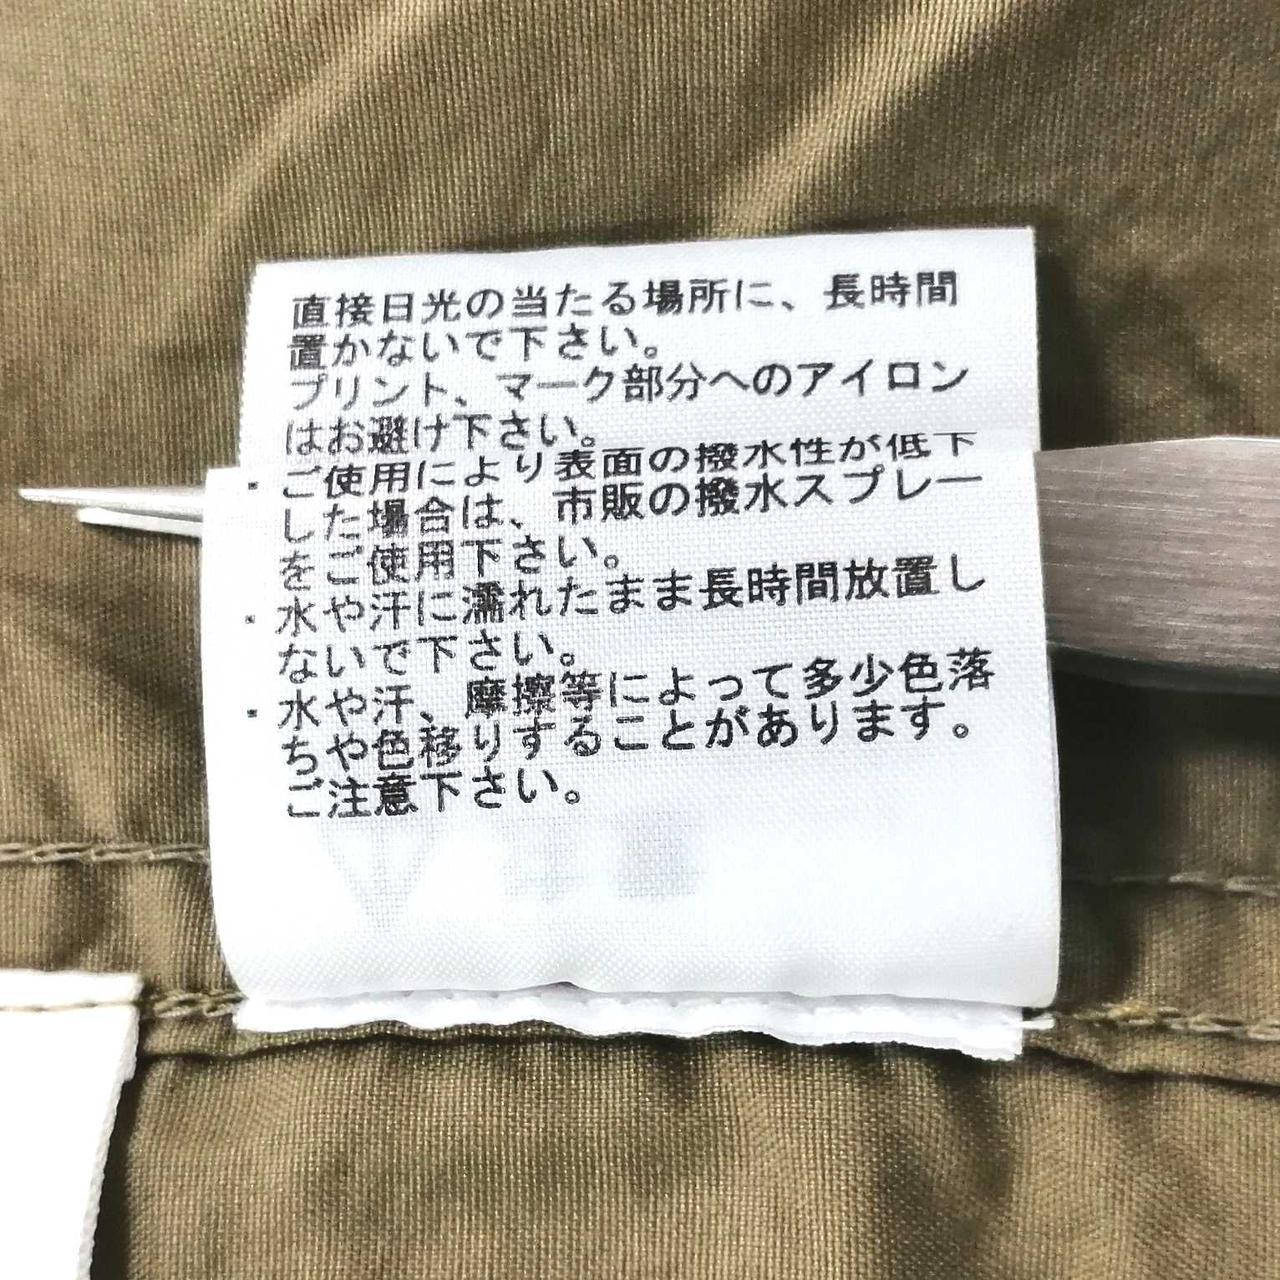 直接日光の当たる場所に、長時間
置かないで下さい。
プリント、マーク部分へのアイロン
はお避け下さい。
・ご使用により表面の撥水性が低下
した場合は、市販の撥水スプレー
をご使用下さい。
・水や汗に濡れたまま長時間放置し
ないで下さい。
・水や汗、摩擦等によって多少色落
ちや色移りすることがあります。
ご注意下さい。